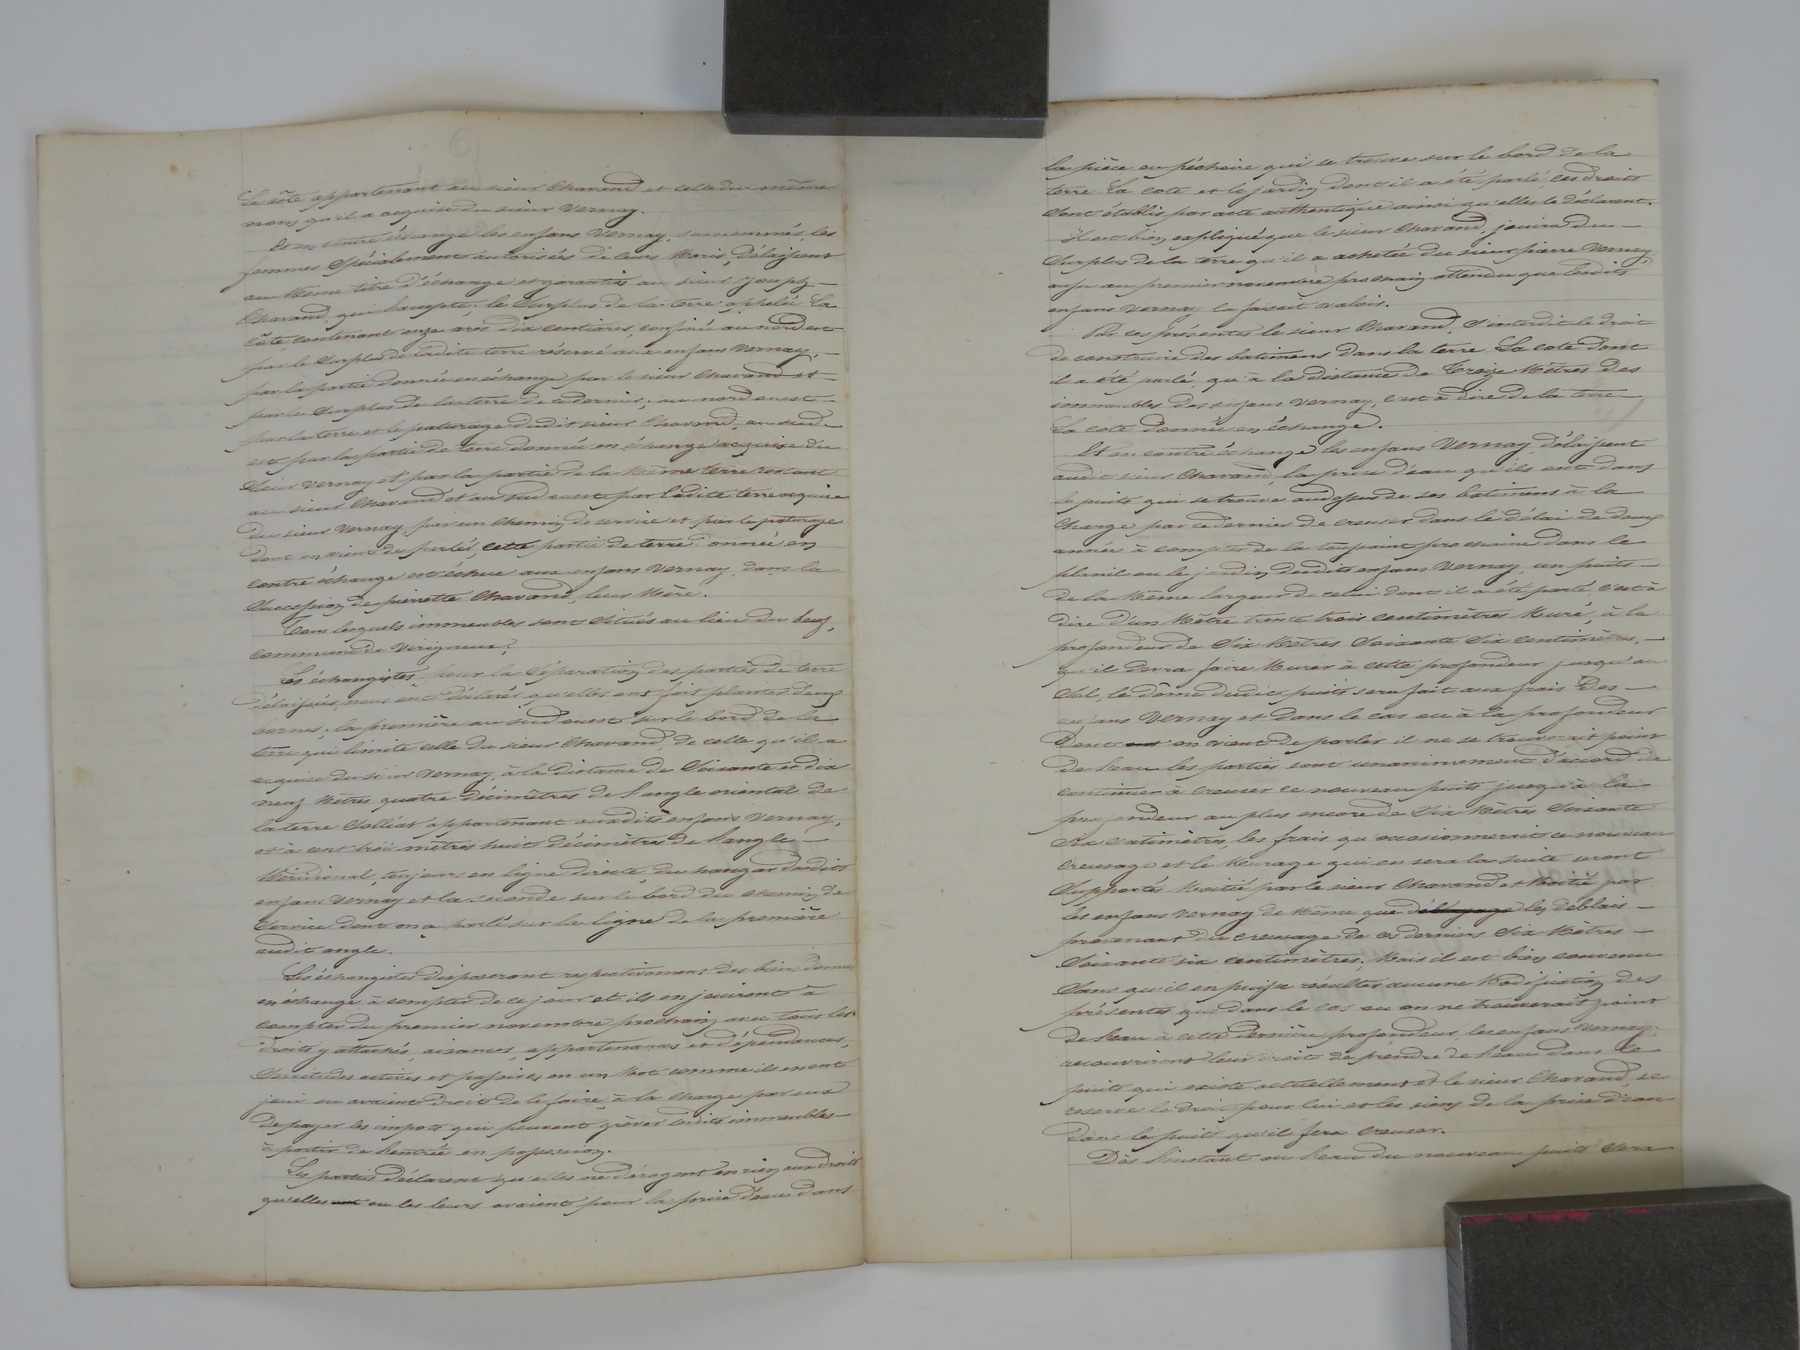 La côte appartenant au sieur Chavand et celle du même
nom qu'il a acquise du sieur Vernay.
Et en contre échange les enfans Vernay, surnommés, les
femmes spécialement autorisées de leurs Maris, Délaissent
au Même titre d'échange et garantis au sieur Joseph
Chavand, qui l'accepte, le Surplus de la terre appelée La
Côte, contenant onze ares dix centiares, confiné au nord est
par le Surplus de ladite terre réservé aux enfans Vernay,
par la partie donnée en échange par le sieur Chavand et
par le Surplus de la terre de ce dernier, au nord ouest
par la terre et le paturage dudit sieur Chavand, au sud
est par la partie de terre donnée en échange acquise du
sieur Vernay et par la partie de la Même terre restant
au sieur Chavand et au sud ouest par ladite terre acquise
du sieur Vernay, par un chemin de service et par le paturage
dont on vient de parler, cette partie de terre donnée en
contre échange est échue aux enfans Vernay, dans la
Succession de pierrette Chavand, leur Mère.
Tous lesquels immeubles sont situés au lieu du
commune de Verigneux.
Les échangistes pour la Séparation des parties de terre
délaissées, nous ont déclaré qu'elles ont fait planter deux
bornes, la première au sud ouest sur le bord de la
terre qui limite celle du sieur Chavand, de celle qu'il a
acquise du sieur Vernay, à la distance de Soixante et dix
neuf Mètres quatre décimètres de l'angle oriental de
la terre Colliat appartenant auxdits enfans Vernay,
et à cent trois mètres huit décimètres de l'angle
Méridional, toujours en ligne directe, du hangar desdits
enfans Vernay et la seconde sur le bord du chemin de
Service dont on a parlé sur la ligne de la première
audit angle.
Les échangistes disposeront respectivement des biens donnés
en échange à compter de ce jour et ils en jouiront à
compter du premier novembre prochain avec tous les
droits y attachés, aisances, appartenances et dépendances,
Servitudes actives et passives, en un Mot comme ils en ont
joui ou avaient droit de le faire, à la Charge par eux
De payer les impots qui peuvent grèver lesdits immeubles
à partir de l'entrée en possession.
Les parties déclarent qu'elles ne dérogent en rien aux droits
qu'elles ou les leurs avaient pour la prise d'eau dans
la pièce ou pêchoire qui se trouve sur le bord de la
terre La cote et le jardin dont il a été parlé, ces droits
sont établis par acte authentique ainsi qu'elles le déclarent.
Il est bien expliqué que le sieur Chavand, jouira du
Surplus de la terre qu'il a achetée du sieur pierre Vernay,
au premier novembre prochain attendu que lesdits
enfans Vernay la faisait valoir.
Par ces présentes le sieur Chavand, s'interdit le droit
de construire des batimens dans la terre La cote dont
il a été parlé, qu'à la distance de Treize Mètres des
immeubles des enfans Vernay, c'est à dire de la terre
La cote donnée en échange.
Et en contre échange les enfans Vernay, délaissent
audit sieur Chavand, la prise d'eau qu'ils ont dans
le puits qui se trouve au dessus de ses batimens à la
Charge par ce dernier de creuser dans le délai de deux
années à compter de la toussaint prochaine dans le
planil ou le jardin desdits enfans Vernay, un puits
de la Même largeur de celui dont il a été parlé, c'est à
dire d'un Mètre trente trois centimètres Muré, à la
profondeur de Six Mètres Soixante Six centimètres,
qu'il devra faire Murer à cette profondeur jusqu'au
Sol, le dôme dudit puits sera fait aux frais Des
enfans Vernay et dans le cas ou à la profondeur
Dont on vient de parler il ne se trouverait point
de l'eau les parties sont unanimement d'accord de
continuer à creuser ce nouveau puits jusqu'à la
profondeur au plus encore de Six Mètres Soixante
Six centimètres, les frais qu'occasionnerait ce nouveau
creusage et le Murage qui en sera la suite seront
Supportés Moitié par le sieur Chavand et Moitié par
les enfans Vernay de Même que déblayage les déblais
provenant du creusage de ces derniers Six Mètres
Soixante six centimètres, Mais il est bien convenu
Sans qu'il en puisse résulter aucune Modification des
présentes que dans le cas ou on ne trouverait point
de l'eau à cette dernière profondeur, les enfans Vernay
recouvriront leur droit de prendre de l'eau dans le
puits qui existe actuellement et le sieur Chavand, se
reserve le droit pour lui et les siens de la prise d'eau
dans le puits qu'il fera creuser.
Dès l'instant ou l'eau du nouveau puits sera